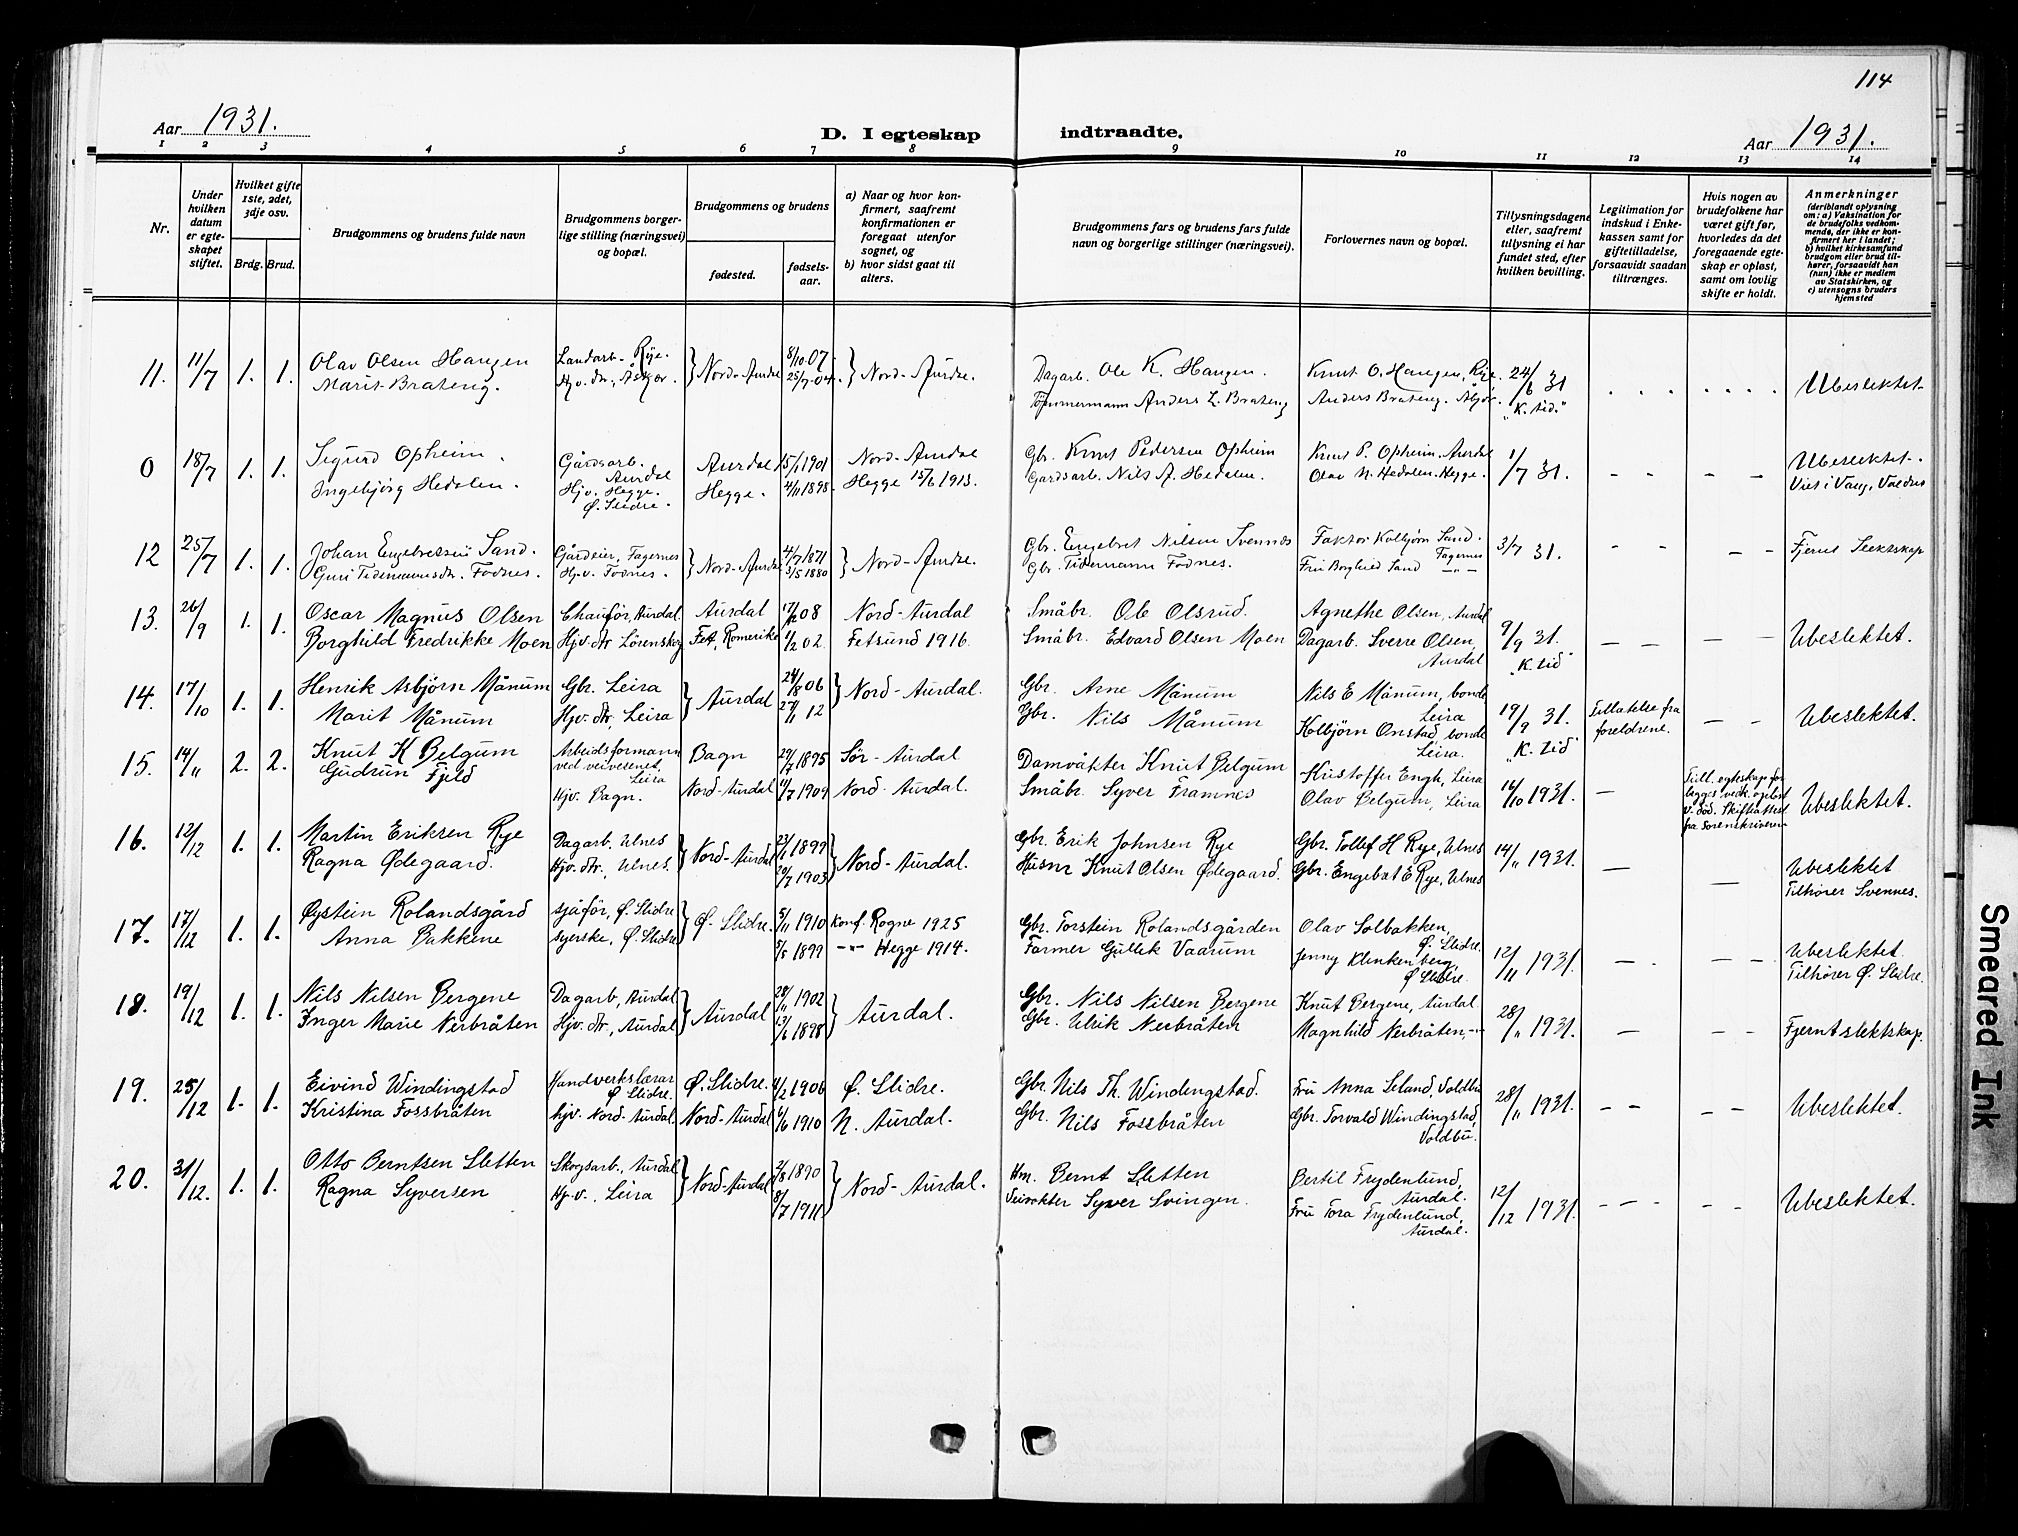 114
Aar 1931.
D. I egteskap indtraadte.
Aar 1931.
1 2 3 4 5 6 7 8 9 10 11 12 13 14
Nr.
Under hvilken datum er egteskapet stiftet.
Hvilket gifte 1ste, 2det, 3dje osv.
Brdg. Brud.
Brudgommens og brudens fulde navn
Brudgommens borgerlige stilling (næringsvei) og bopæl.
Brudgommens og brudens
fødested.
fødselsaar.
a) Naar og hvor konfirmert, saafremt konfirmationen er foregaat utenfor sognet, og
b) hvor sidst gaat til alters.
Brudgommens fars og brudens fars fulde navn og borgerlige stillinger (næringsvei).
Forlovernes navn og bopæl.
Tillysningsdagene eller, saafremt tillysning ei har fundet sted, efter hvilken bevilling.
Legitimation for indskud i Enkekassen samt for giftetilladelse, forsaavidt saadan tiltrænges.
Hvis nogen av brudefolkene har været gift før, hvorledes da det foregaaende egteskap er opløst, samt om lovlig skifte er holdt.
Anmerkninger (deriblandt oplysning om: a) Vaksination for de brudefolks vedkommende, der ikke er konfirmert her i landet; b) hvilket kirkesamfund brudgom eller brud tilhører, forsaavidt han (hun) ikke er medlem av Statskirken, og c) utensogns bruders hjemsted
11. 11/7 1. 1. Olav Olsen Haugen Landarb. Rye. } Nord-Aurdal 8/10 07 } Nord-Aurdal. Dagarb. Ole K. Haugen. Knut O. Haugen, Rye. 24/6 31 Ubeslektet
Marit Brateng. Hjv. dtr., 25/7 04 Tømmermann Anders L. Brateng Anders Brateng. "K. tid."
0 18/7 1. 1. Sigurd Opheim. Gårdsarb. Aurdal Aurdal 15/1 1901 Nord-Aurdal Gbr. Knut Pedersen Opheim Knut P. Opheim. Aurdal 1/7 31. - - - - Ubeslektet.
Ingebjørg Hedalen. Hjv. Hegge. Ø. Slidre. Hegge. 4/11 1898 Hegge 15/6 1913. Gardsarb. Nils A. Hedalen. Olav N. Hedalen. Hegge. Viet i Vang, Valdres
12 25/7 1. 1. Johan Engebretsen Sand. Gårdeier, Fagernes } Nord-Aurdal 4/7 1871 } Nord-Aurdal. Gbr. Engebret Nilsen Svennes Faktor Kolbjørn Sand. Fagernes 3/7 31. - - - - Fjernt Slektskap
Guri Tidemannsdtr. Fodnes. Hjv. Fodnes. 3/5 1880 Gbr. Tidemann Fodnes. Fru Borghild Sand -"-
13. 26/9 1. 1. Oscar Magnus Olsen Chaufør, Aurdal. Aurdal 17/12 08 Nord-Aurdal Småbr. Ole Olsrud. Agnethe Olsen, Aurdal 9/9 31. - - - - Ubeslektet.
Borghild Fredrikke Moen Hjv. dtr Lørenskog Fet, Romerike 1/2 02. Fetsund 1916. Småbr. Edvard Olsen Moen Dagarb. Sverre Olsen, Aurdal "K. tid"
14. 17/10 1. 1. Henrik Asbjørn Månum Gbr. Leira } Aurdal 24/8 06 } Nord-Aurdal. Gbr. Arne Månum Nils E Månum, bonde Leira 19/9 31. Tillatelse fra foreldrene. - - Ubeslektet.
Marit Månum Hjv. dtr, Leira 27/11 12 Gbr. Nils Månum Kolbjørn Onstad, bonde Leira. "K. tid"
15. 14/11 2. 2. Knut K Belgum Arbeidsformann ved veivesenet Leira Bagn 29/7 1895 Sør-Aurdal Damvåkter Knut Belgum Kristoffer Engh, Leira 14/10 1931. - Tidl. egteskap for begges vedk. opløst v. død. Skifteattest fra Sorenskriveren Ubeslektet.
Gudrun Fjeld Hjv. Bagn. Nord-Aurdal 11/7 1909 Nord-Aurdal. Småbr. Syver Framnes Olav Belgum, Leira
16. 12/12 1. 1. Martin Eriksen Rye Dagarb. Ulnes } Nord-Aurdal 23/1 1899 } Nord-Aurdal. Gbr. Erik Johnsen Rye Gbr. Tollef H Rye, Ulnes 14/11 1931. - - Ubeslektet
Ragna Ødegaard. Hjv. dtr., Ulnes. 20/7 1903 Husm Knut Olsen Ødegaard. Gbr. Engebret E Rye, Ulnes Tilhører Svennes.
17. 17/12 1. 1. Øystein Rolandsgård sjåfør, Ø. Slidre } Ø. Slidre. 5/11 1910 Konf. Rogne 1925 Gbr. Torstein Rolandsgården Olav Solbakken, Ø. Slidre. 12/11 1931. - - - Ubeslektet.
Anna Bakkene syerske, Ø. Slidre 5/5 1899 -"- Hegge 1914. Farmer Gullik Vaarum Jenny Klinkenberg, Ø. Slidre. Tilhører Ø. Slidre.
18. 19/12 1. 1. Nils Nilsen Bergene Dagarb, Aurdal } Aurdal 28/11 1902 } Aurdal. Gbr. Nils Nilsen Bergene Knut Bergene, Aurdal 28/11 1931. - - - Fjernt slektskap.
Inger Marie Nerbråten Hjv. dtr, Aurdal 13/6 1898 Gbr. Ulrik Nerbråten Magnhild Nerbråten, -"-
19. 25/12 1. 1. Eivind Windingstad Handverkslærar Ø. Slidre. Ø. Slidre. 4/2 1906 Ø. Slidre. Gbr. Nils Th. Windingstad. Fru Anna Leland, Voldbu 28/11 1931. - - - - Ubeslektet.
Kristina Fossbråten hjv. Nord-Aurdal. Nord-Aurdal 6/6 1910 N. Aurdal. Gbr. Nils Fossbråten Gbr. Torvald Windingstad, Voldbu.
20. 31/12. 1. 1. Otto Berntsen Sletten Skogsarb., Aurdal } Nord-Aurdal 2/8 1890 } Nord-Aurdal. Hm. Bernt Sletten Bertil Frydenlund, Aurdal. 12/12 1931. - - - - Ubeslektet.
Ragna Syversen Hj.v., Leira 8/7 1911. Veivokter Syver Svingen. Fru Tora Frydenlund, Aurdal.
Smeared Ink